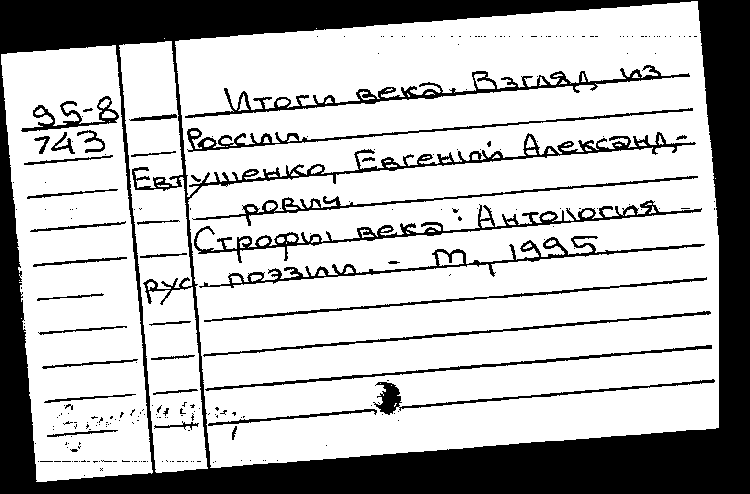 Итоги века. Взгляд из
95-8
743
России.
Евтушенко, Евгений Александ-
рович.
Строфы века: Антология
рус. поэзии. - М., 1995.